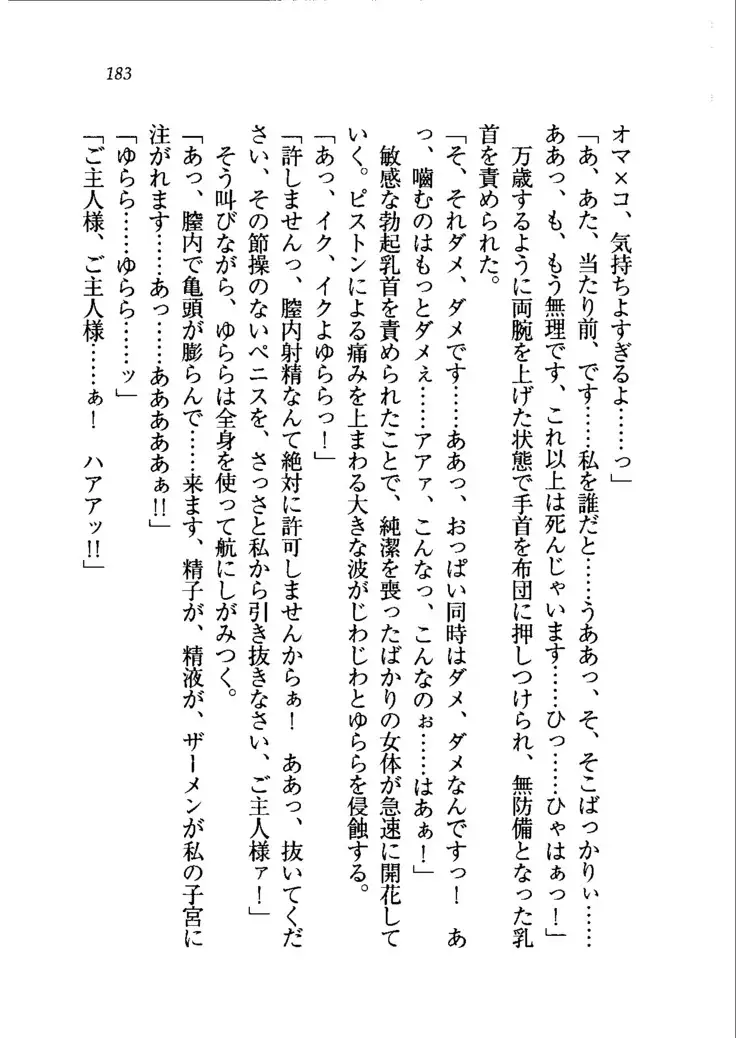 183
オマ×コ、気持ちよすぎるよ……っ」
「あ、あた、当たり前、です……私を誰だと……うああっ、そ、そこばっかりぃ……
ああっ、も、もう無理です、これ以上は死んじゃいます……ひっ……ひゃはぁっ！」
万歳するように両腕を上げた状態で手首を布団に押しつけられ、無防備となった乳
首を責められた。
「そ、それダメ、ダメです……ああっ、おっぱい同時はダメ、ダメなんですっ！　あ
っ、噛むのはもっとダメぇ……アアァ、こんなっ、こんなのぉ……はあぁ！」
敏感な勃起乳首を責められたことで、純潔を喪ったばかりの女体が急速に開花して
いく。ピストンによる痛みを上まわる大きな波がじわじわとゆららを侵蝕する。
「あっ、イク、イクよゆららっ！」
「許しませんっ、膣内射精なんて絶対に許可しませんからぁ！　ああっ、抜いてくだ
さい、その節操のないペニスを、さっさと私から引き抜きなさい、ご主人様ァ！」
そう叫びながら、ゆららは全身を使って航にしがみつく。
「あっ、膣内で亀頭が膨らんで……来ます、精子が、精液が、ザーメンが私の子宮に
注がれます……あっ……ああああぁ!!」
「ゆらら……ゆらら……ッ」
「ご主人様、ご主人様……ぁ！　ハアアッ!!」